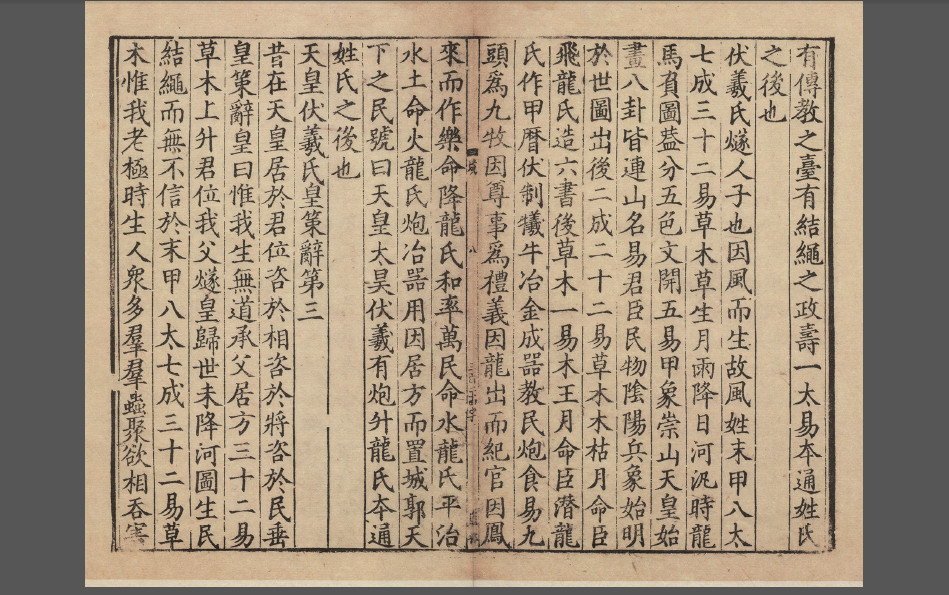 有傳教之臺有結繩之政壽一太易本通姓氏
之後也
伏羲氏燧人子也因風而生故風姓末甲八太
七成三十二易草木草生月雨降日河汎時龍
馬負圖葢分五色文開五易甲象崇山天皇始
畫八卦皆連山名易君臣民物陰陽兵象始明
於世圖出後二成二十二易草木木枯月命臣
飛龍氏造六書後草木一易木王月命臣潛龍
氏作甲曆伏制犧牛冶金成器教民炮食易九
頭爲九牧因尊事爲禮義因龍出而紀官因鳳
八
來而作樂命降龍氏和率萬民命水龍氏平治
水土命火龍氏炮冶器用因居方而置城郭天
下之民號曰天皇太昊伏羲有炮升龍氏本通
姓氏之後也
天皇伏羲氏皇策辭第三
昔在天皇居於君位咨於相咨於將咨於民垂
皇策辭皇曰惟我生無道承父居方三十二易
草木上升君位我父燧皇歸世未降河圖生民
結繩而無不信於末甲八太七成三十二易草
木惟我老極時生人衆多羣羣蟲聚欲相吞害